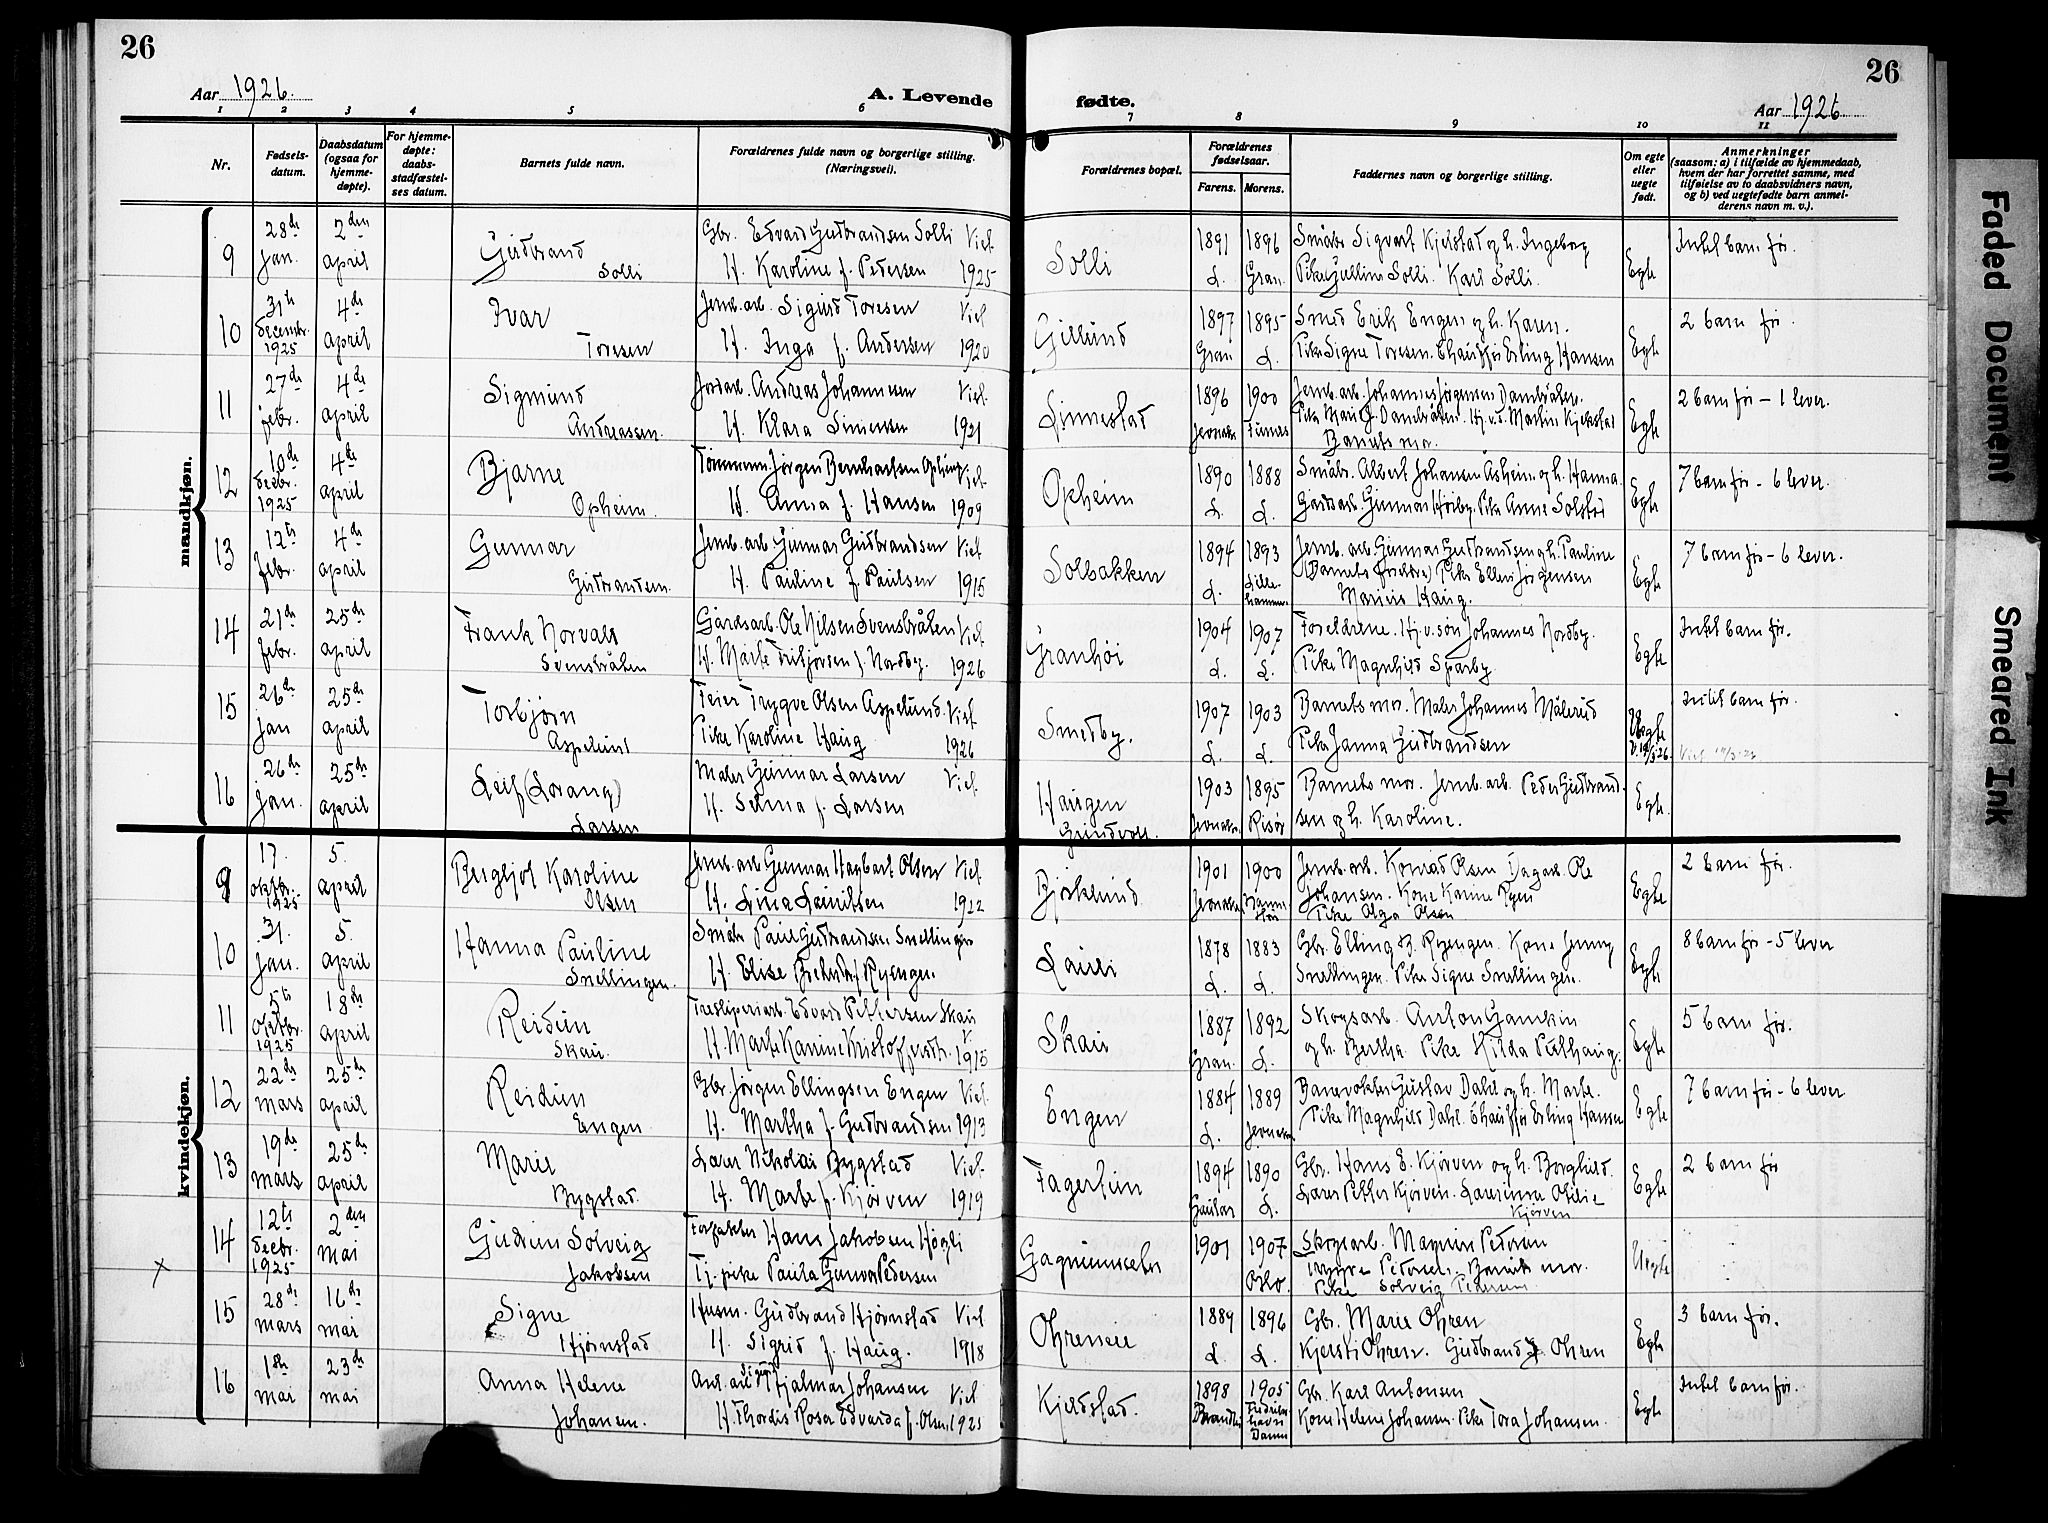 26
26
Aar 1926.
A. Levende
fødte.
Aar 1926
1 2 3 4 5 6 7 8 9 10 11
Nr.
Fødsels-
datum.
Daabsdatum
(ogsaa for
hjemme-
døpte).
For hjemme-
døpte:
daabs-
stadfæstel-
ses datum.
Barnets fulde navn.
Forældrenes fulde navn og borgerlige stilling.
(Næringsvei).
Forældrenes bopæl.
Forældrenes
fødselsaar.
Farens. Morens.
Faddernes navn og borgerlige stilling.
Om egte
eller
uegte
født.
Anmerkninger
(saasom: a) i tilfælde av hjemmedaab,
hvem der har forrettet samme, med
tilføielse av to daabsvidners navn,
og b) ved uegtefødte barn anmel-
derens navn m. v.).
mandkjøn.
9 28de Jan. 2den april Gudbrand Solli
Gbr. Edvard Gudbrandsen Solli Viet
H. Karoline f. Pedersen 1925
Solli 1891 L. 1896 Gran
Småbr. Sigvart Kjelstad og h. Ingeborg
Pike Gulline Solli. Karl Solli.
Egte Intet barn før.
10 31te decembr. 1925 4de april Ivar Toresen
Jernb. arb. Sigurd Toresen Viet
H. Inga f. Andersen 1920
Gillund 1897 Gran 1895 L.
Smed Erik Engen og h. Karen.
Pike Signe Toresen. Chauffør Erling Hansen
Egte 2 barn før.
11 27de febr. 4de april Sigmund Andreassen
Jordarb. Andreas Johannesen Viet
H. Klara Simensen 1921
Linnestad 1896 Jevnaker 1900 Furnes
Jernb. arb. Johannes Jørgensen Dambråten.
Pike Marie J. Dambråten. Hj.v.s. Martin Kjelstad
Barnets mor.
Egte 2 barn før - 1 lever.
12 10de decbr. 1925 4de april Bjarne Opheim
Tømmerm. Jørgen Bernhartsen Opheim Viet
H. Anna f. Hansen 1909
Opheim 1890 L. 1888 L.
Småbr. Albert Johansen Åsheim og h. Hanna.
Gårdsarb. Gunnar Hørby. Pike Anne Solstad
Egte 7 barn før - 6 lever.
13 12te febr. 4de april Gunnar Gudbrandsen.
Jernb. arb. Gunnar Gudbrandsen Viet
H. Pauline f. Paulsen 1915
Solbakken 1894 L. 1893 Lille-hammer
Jernb. arb. Gunnar Gudbrandsen og h. Pauline
(Barnets foreldre) Pike Ellen Jørgensen
Marius Haug.
Egte 7 barn før - 6 lever.
14 21de febr. 25de april Frank Norvald Svensbråten
Gårdsarb. Ole Nilsen Svensbråten Viet
H. Marte Fribjørsen f. Nordby. 1926
Granhøi 1904 L. 1907 L.
Foreldrene. Hj.v.søn Johannes Nordby.
Pike Magnhild Sparby.
Egte Intet barn før.
15 26de Jan 25de april Torbjørn Aspelund
Feier Trygve Olsen Aspelund. Viet
Pike Karoline Haug 1926
Smedby. 1907 L. 1903 L.
Barnets mor. Maler Johannes Målerud
Pike Janna Gudbrandsen
Uegte Intet barn før.
16 26de Jan. 25de april Leif (Lorang) Larsen
Maler Gunnar Larsen Viet
H. Selma f. Larsen
Haugen Grindvoll. 1903 Jevnaker. 1895 Risør
Barnets mor. Jernb. arb. Peder Gudbrand-
sen og h. Karoline.
Egte.
kvindekjøn.
9 17. oktbr. 1925 5. april Bergljot Karoline Olsen
Jernb. arb. Gunnar Hagbart Olsen Viet
H. Lina Lauritsen 1922
Bjørkelund 1901 Jevnaker 1900
Jernb. arb. Konrad Olsen Dagarb. Ole
Johansen. Kone Karine Ryen
Pike Olga Olsen
Egte 2 barn før.
10 31. Jan. 5. april Hanna Pauline Snellingen.
Småbr. Paul Gudbrandsen Snellingen
H. Elise f. Ryengen.
Lauli 1878 L. 1883 L.
Gbr. Elling B. Ryengen. Kone Jenny
Snellingen. Pike Signe Snellingen.
Egte 8 barn før - 5 lever
11 5te oktbr. 1925 18de april Reidun Skau.
Tresliperiarb. Edvard Pettersen Skau
H. Marte Karine Kristoffersdtr. V. 1915
Skau 1887 Gran. 1892 L.
Skogsarb. Anton Gamkin
og h. Bertha. Pike Hilda Puthaug.
Egte 5 barn før.
12 22de mars 25de april Reidun Engen
Gbr. Jørgen Ellingsen Engen Viet.
H. Martha f. Gudbrandsen 1913
Engen 1884 L. 1889 Jevnaker
Banevokter Gustav Dahl og h. Marte.
Pike Magnhild Dahl. Chauffør Erling Hansen
Egte 7 barn før - 6 lever
13 19de mars 25de april Marie Bygstad.
Lærer Nikolai Bygstad Viet
H. Marte f. Kjørven 1919
Fagertun 1894 Gaular 1890 L.
Gbr. Hans E. Kjørven og h. Borghild.
Lærer Petter Kjørven. Laurenna Otilie
Kjørven
Egte 2 barn før
14 12te decbr. 1925 2den mai Gudrun Solveig Jakobsen
Forpakter Hans Jakobsen Høgli
Tj. pike Paula Gunvor Pedersen
Gagnumseter 1901 1907 Oslo.
Skogsarb. Magnus Petersen
Trygve Petersen. Barnets mor.
Pike Solveig Petersen
Uegte
X
15 28de mars 16de mai Signe Hjørnstad
Husm. Gudbrand Hjørnstad Viet
H. Sigrid f. Haug. 1918
Ohreneie 1889 L. 1896 L.
Gbr. Marie Ohren
Kjersti Ohren. Gudbrand J. Ohren
Egte 3 barn før.
16 1ste mai 23de mai Anna Helene Johansen.
Hjalmar Johansen Viet
H. Thordis Rosa Edvarda f. Olsen 1925
Kjeldstad. 1898 Brandbu 1905 Fredriks-havn Danm
Gbr. Karl Antonsen
Kone Helene Johansen. Pike Tora Johansen.
Egte Intet barn før.
Faded Document
Smeared Ink